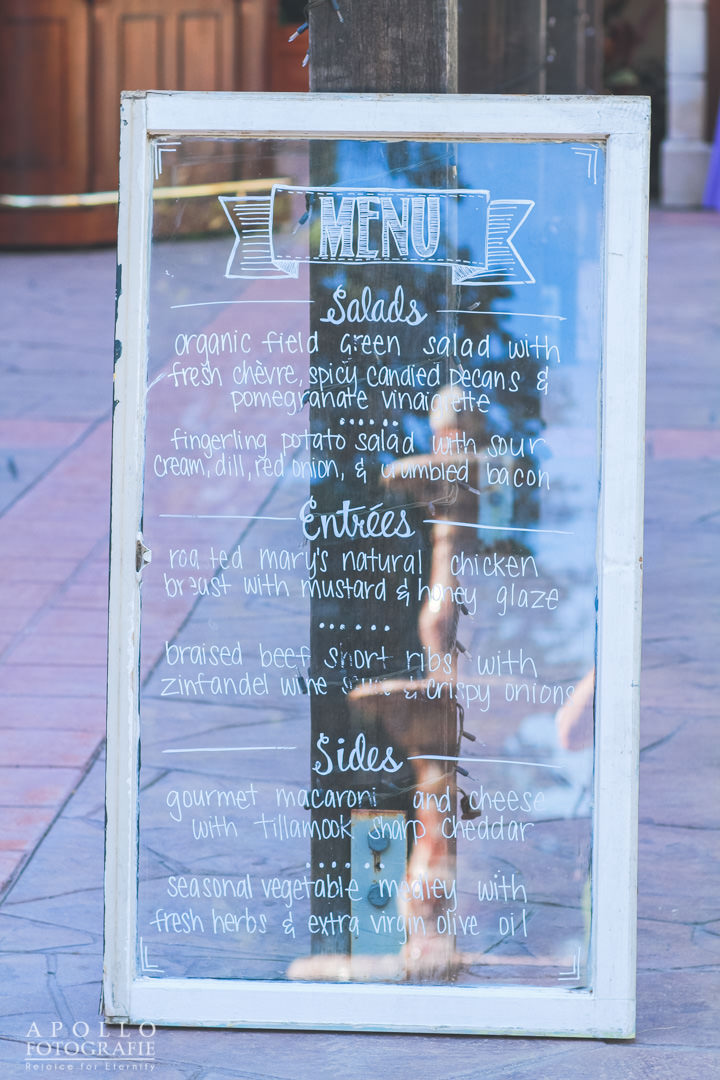 MENU
Salads
organic field green salad with
fresh chèvre, spicy candied pecans &
pomegranate vinaigrette
fingerling potato salad with sour
cream, dill, red onion, & crumbled bacon
Entrées
roasted mary's natural chicken
breast with mustard & honey glaze
braised beef short ribs with
zinfandel wine sauce & crispy onions
Sides
gourmet macaroni and cheese
with tillamook sharp cheddar
seasonal vegetable medley with
fresh herbs & extra virgin olive oil
APOLLO
FOTOGRAFIE
Rejoice for Eternity